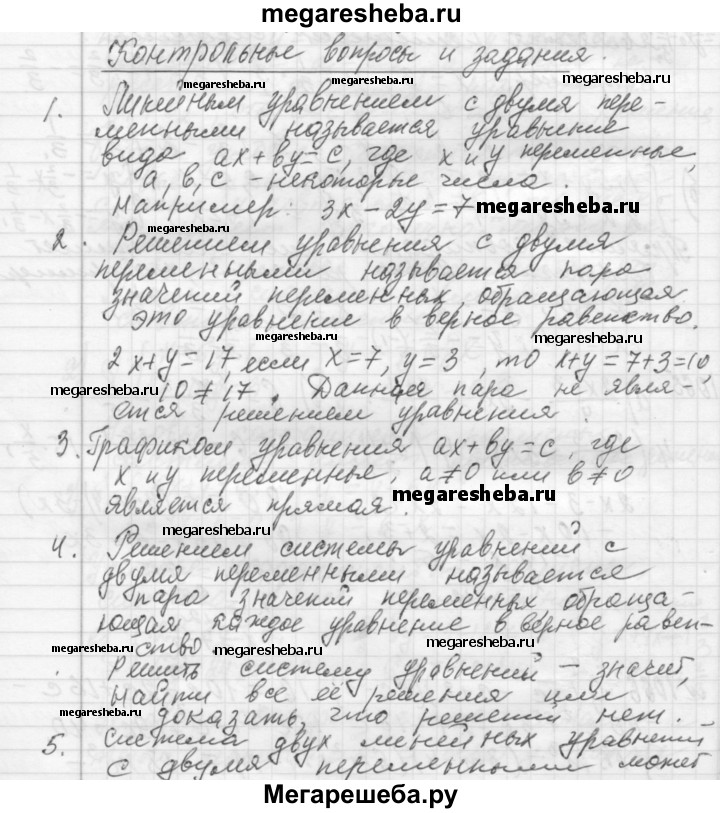 megaresheba.ru
Контрольные вопросы и задания.
megaresheba.ru megaresheba.ru
megaresheba.ru
1. Линейным уравнением с двумя пере-
менными называется уравнение
вида ax+by=c, где x и y переменные,
a, b, c - некоторые числа.
Например: 3x-2y=7 megaresheba.ru
megaresheba.ru
2. Решением уравнения с двумя
переменными называется пара
значений переменных, обращающая
это уравнение в верное равенство.
megaresheba.ru
2x+y=17, если x=7, y=3, то x+y=7+3=10
megaresheba.ru 10≠17. Данная пара не явля-
ется решением уравнения.
3. Графиком уравнения ax+by=c, где
x и y переменные, a≠0 или b≠0
является прямая. megaresheba.ru
megaresheba.ru
4. Решением системы уравнений с
двумя переменными называется
пара значений переменных обраща-
ющая каждое уравнение в верное равен-
megaresheba.ru ство. megaresheba.ru
Решить систему уравнений - значит,
найти все её решения или
megaresheba.ru доказать, что решений нет.
megaresheba.ru
5. Система двух линейных уравнений
с двумя переменными может
Мегарешеба.ру